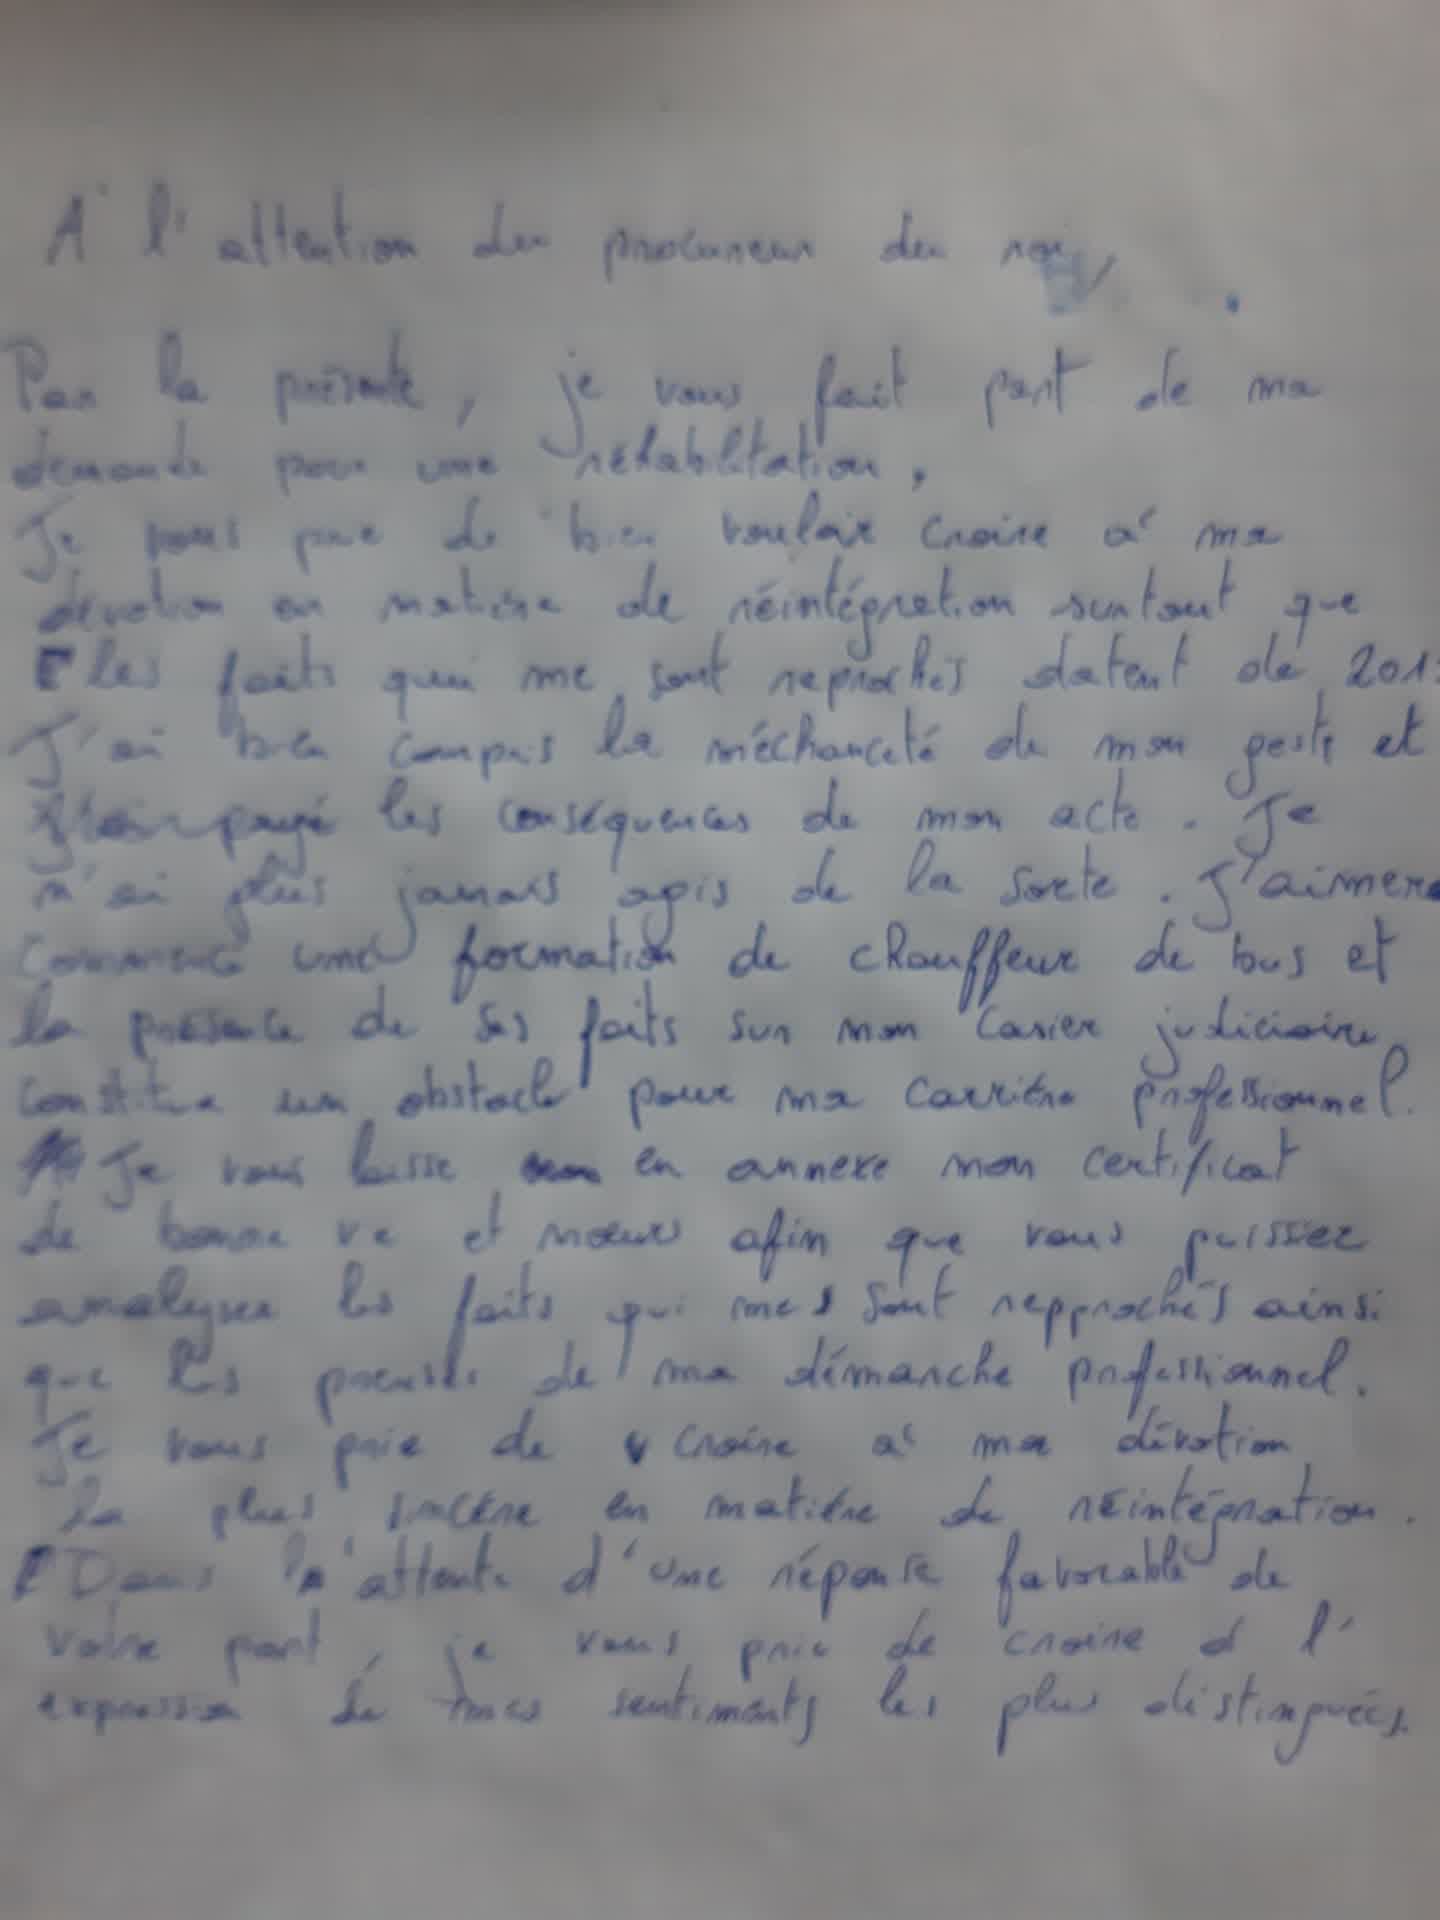 A l'attention du procureur du roi,
Par la présente, je vous fait part de ma
demande pour une réhabilitation.
Je vous prie de bien vouloir croire à ma
dévotion en matière de réintégration surtout que
les faits qui me sont reprochés datent de 201
J'ai bien compris la méchanceté de mon geste et
payé les conséquences de mon acte. Je
n'ai plus jamais agis de la sorte. J'aimera
commencé une formation de chauffeur de bus et
la présence de ses faits sur mon casier judiciaire
constitue un obstacle pour ma carrière professionnel.
Je vous laisse en annexe mon certificat
de bonne vie et mœurs afin que vous puissiez
analyser les faits qui mes sont repprochés ainsi
que les preuves de ma démarche professionnel.
Je vous prie de croire à ma dévotion
la plus sincère en matière de réintégration.
Dans l'attente d'une réponse favorable de
votre part, je vous prie de croire à l'
expression de mes sentiments les plus distinguées.